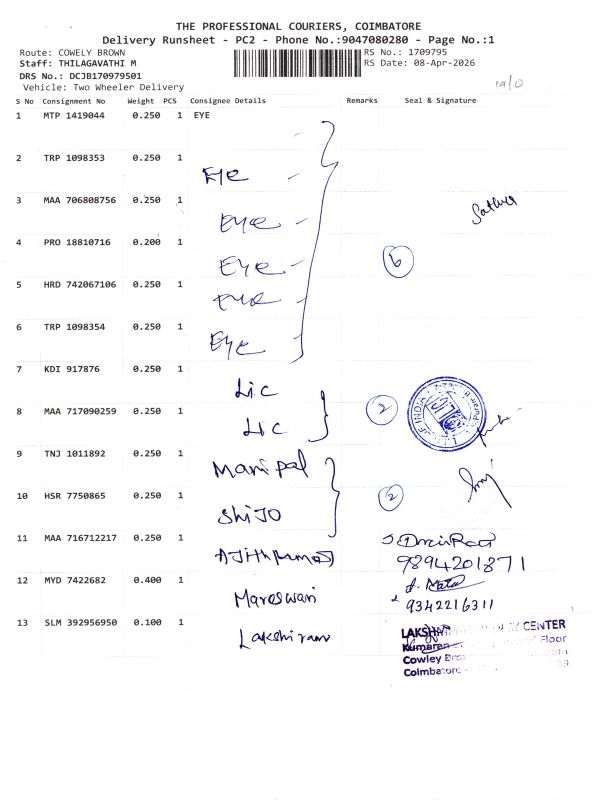 THE PROFESSIONAL COURIERS, COIMBATORE
Delivery Runsheet - PC2 - Phone No.:9047080280 - Page No.:1
Route: COWELY BROWN
RS No.: 1709795
Staff: THILAGAVATHI M
RS Date: 08-Apr-2026
DRS No.: DCJB170979501
Vehicle: Two Wheeler Delivery
19/0
S No Consignment No Weight PCS Consignee Details Remarks Seal & Signature
1 MTP 1419044 0.250 1 EYE
2 TRP 1098353 0.250 1
EYE
3 MAA 706808756 0.250 1
Sathya
EYE
4 PRO 18810716 0.200 1
EYE
6
5 HRD 742067106 0.250 1
EYE
6 TRP 1098354 0.250 1
EYE
7 KDI 917876 0.250 1
Lic
8 MAA 717090259 0.250 1
2
LIC
OF INDIA
9 TNJ 1011892 0.250 1
Manipal
10 HSR 7750865 0.250 1
2
ShiJo
11 MAA 716712217 0.250 1
9894201871
12 MYD 7422682 0.400 1
Mareswari
9342216311
13 SLM 392956950 0.100 1
Lakshiram
LAKSHMI CENTER
Kumaran Floor
Cowley Bro
Coimbatore